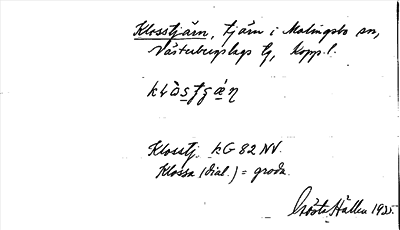 Klosstjärn, tjärn i Malingsbo sn,
Västerbergslags tg, Kopp. l.
Klosstj. kG 82 NV.
Klossa (dial.) = groda.
Gösta Hallen 1925.